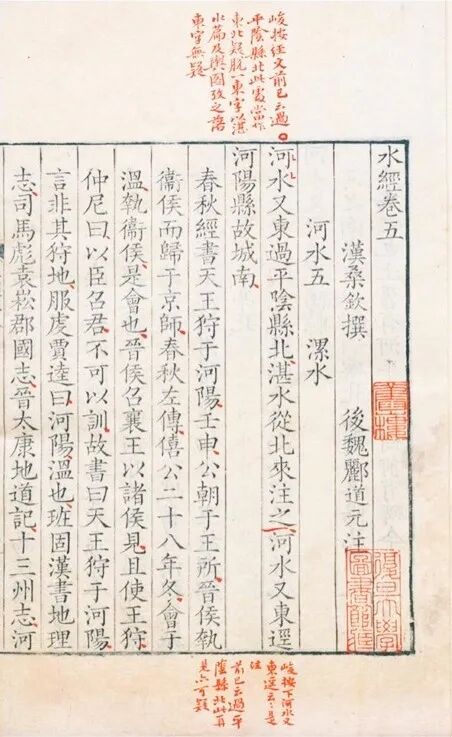 峻按經文前已云過
平陰縣北此處當作
東北疑脫一東字以湛
水篇及輿圖攷之落
東字無疑
水經卷五
漢桑欽撰 後魏酈道元注
河水五 漯水
河水又東過平陰縣北湛水從北來注之河水又東逕
河陽縣故城南
春秋經書天王狩于河陽壬申公朝于王所晉侯執
衞侯而歸于京師春秋左傳僖公二十八年冬會于
溫執衞侯是會也晉侯召襄王以諸侯見且使王狩
仲尼曰以臣召君不可以訓故書曰天王狩于河陽
言非其狩地服虔賈逵曰河陽溫也班固漢書地理
志司馬彪袁崧郡國志晉太康地道記十三州志河
峻按下河水又
東逕云云是
注
前已云過平
陰縣北此再
見亦可疑
書樓
復旦大學
圖書館藏